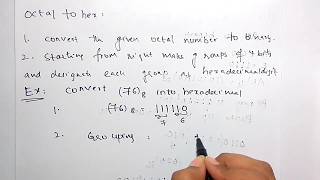 Octal to hex:
1. Convert the given octal number to binary.
2. Starting from right make groups of 4 bits
and designate each group as hexadecimal digit
Ex: Convert (76)8 into hexadecimal
1. (76)8 = 111110
7 6
2. Grouping :